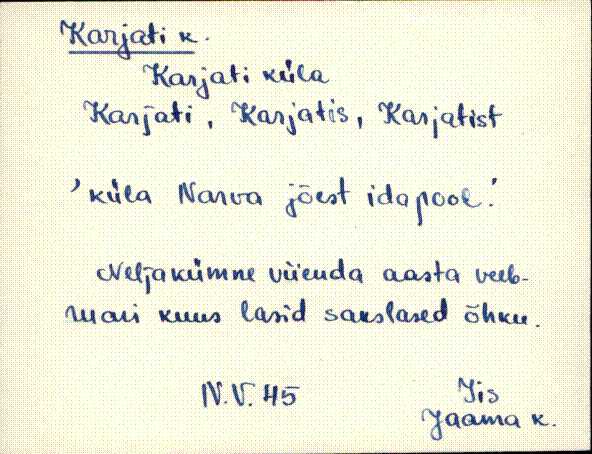 Karjati k.
Karjati küla
Karjati, Karjatis, Karjatist
'küla Narva jõest idapool.'
Neljakümne viienda aasta veeb-
ruari kuus lasid sakslased õhku.
N.V. 45
Jis
Jaama k.